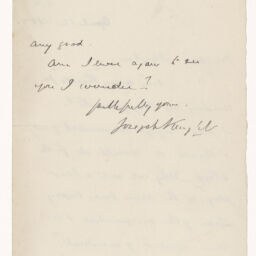 any good.
Am I ever again to see
you I wonder?
faithfully yours
Joseph Knight